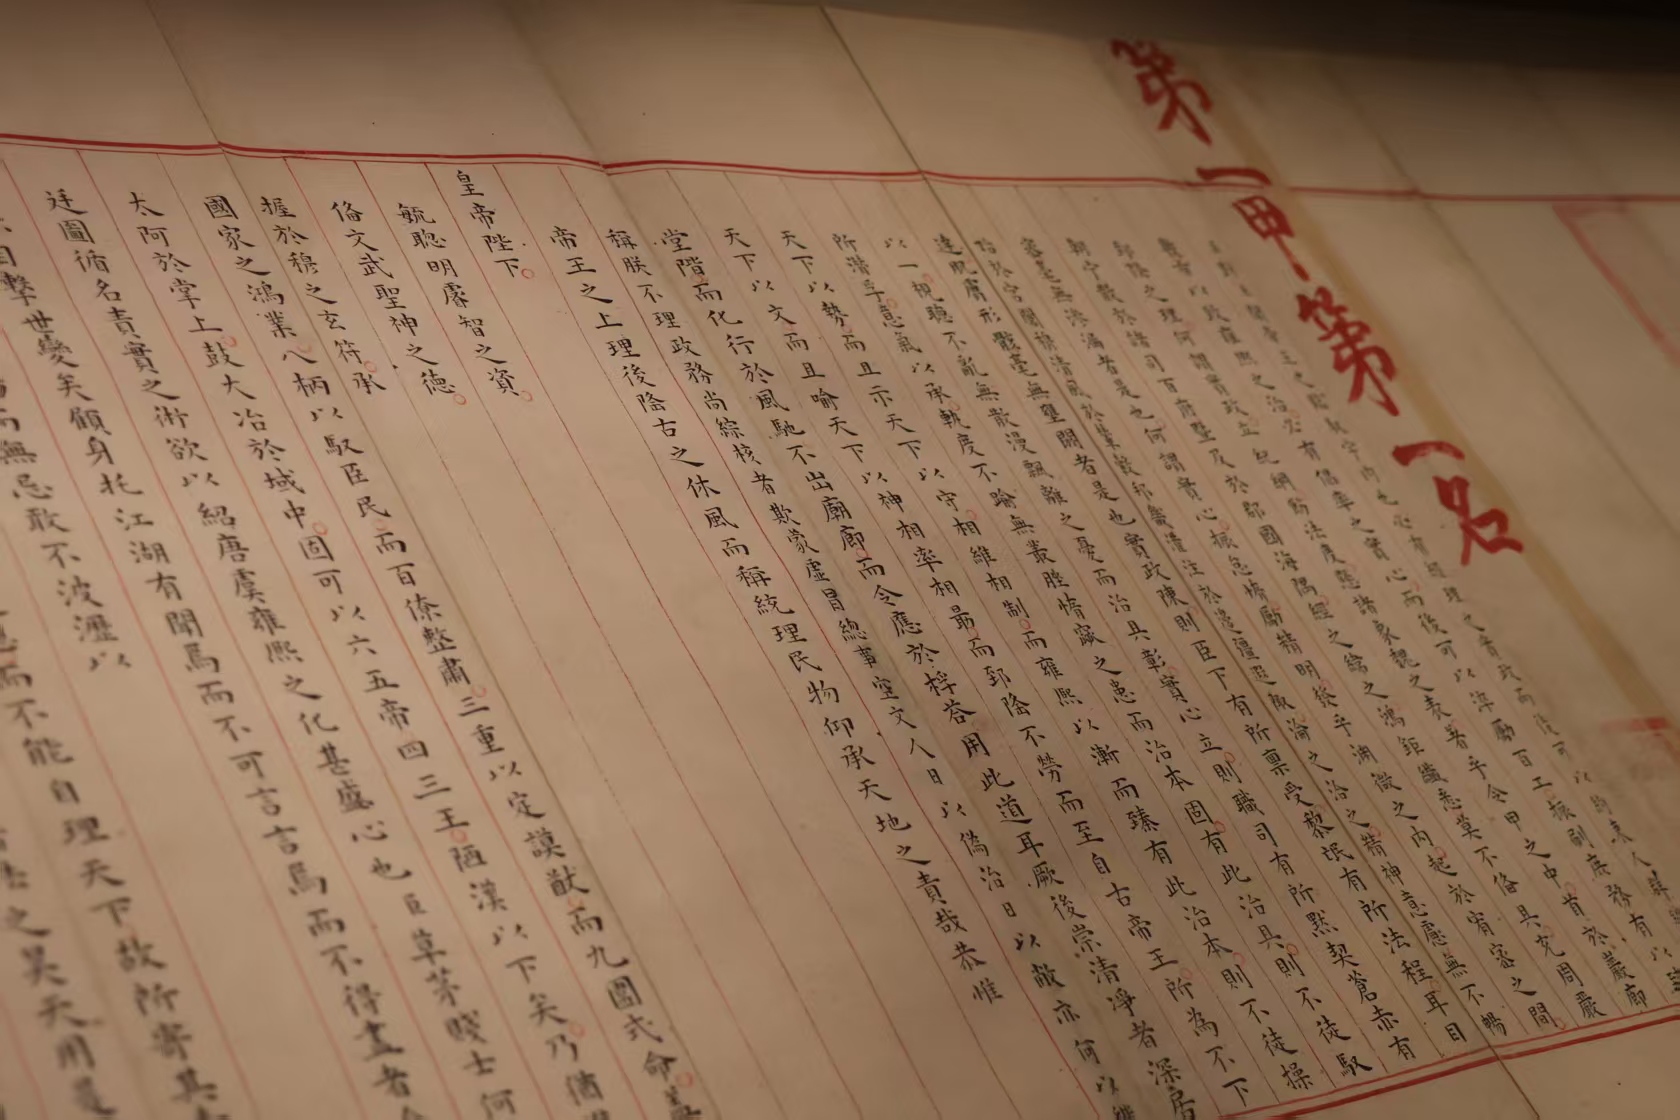 第一甲第一名
臣對臣聞帝王之臨馭宇內也必有經理之實政而後可以約束人群錯
綜萬機有以致雍熙之治必有倡率之實心而後可以淬勵百工振刷庶務有以臻
郅隆之理何謂實政立紀綱飭法度懸諸象魏之表著乎令甲之中首於巖廊
朝寧散於諸司百府暨及於郡國海隅經之緯之鴻鉅纖悉莫不俻具充周嚴
密毫無滲漏者是也何謂實心振怠惰勵精明發乎淵微之內起於宥密之間
始於宮闈穆清風於輦轂邦畿灌注於邊疆遐陬淪之洽之精神意慮無不暢
達肌膚形骸毫無壅閼者是也實政陳則臣下有所稟受黎氓有所法程耳目
以一視聽不亂無散漫飄離之憂而治具彰實心立則職司有所默契蒼赤有
所潛孚意氣以承軌度不踰無叢脞惰窳之患而治本固有此治具則不徒馭
天下以勢而且示天下以守相維相制而雍熙以漸而臻有此治本則不徒操
天下以文而且喻天下以神相率相朂而郅隆不勞而至自古帝王所為不下
堂階而化行於風馳不出廟廊而令應於桴答用此道耳厥後崇清淨者深居
稱朕不理政務尚綜核者欺蒙虛冒總事空文人日以偽治日以敝亦何以繼
帝王之上理後隆古之休風而稱統理民物仰承天地之責哉恭惟
皇帝陛下
毓聰明睿智之資
俻文武聖神之德
握於穆之玄符承
國家之鴻業八柄以馭臣民而百僚整肅三重以定謨猷而九圍式命蓋
太阿於掌上鼓大冶於域中固可以六五帝四三王陋漢以下矣乃猶進
廷圖循名責實之術欲以紹唐虞雍熙之化甚盛心也臣草茅賤士何
目擊世變矣顧身托江湖有聞焉而不可言言焉而不得盡者今
而無忌敢不披瀝以
而不能自理天下故所寄其
之昊天用